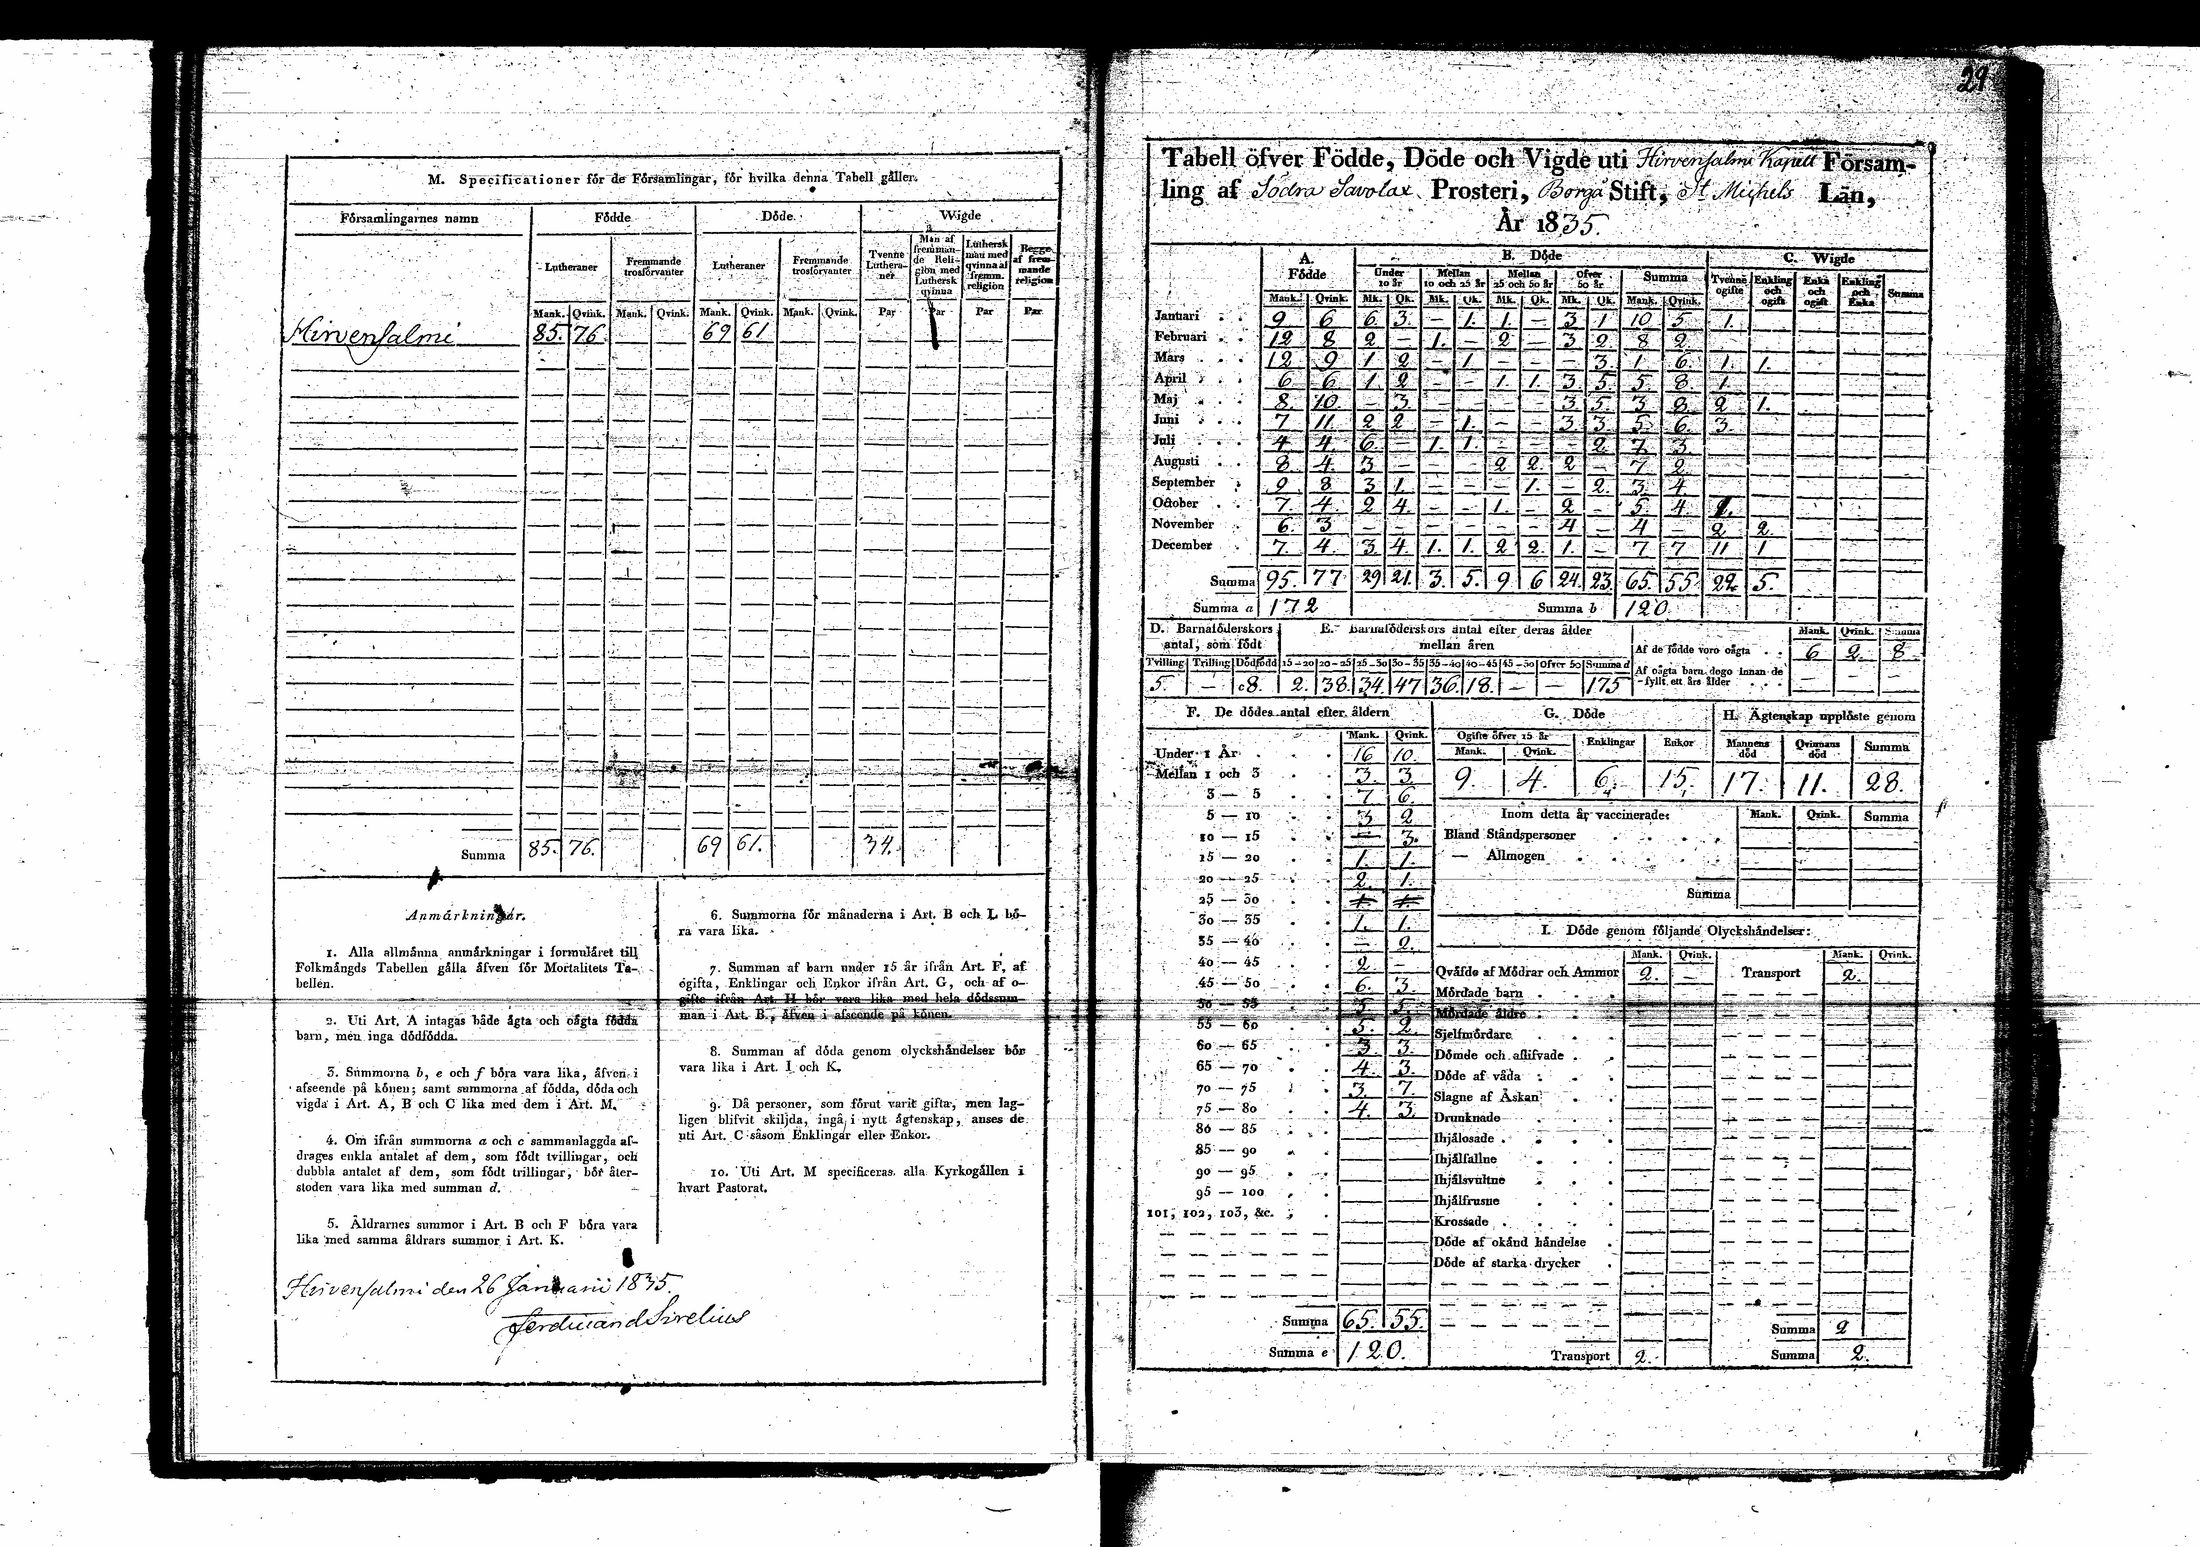 M. Specificationer för de Församlingar, för hvilka denna Tabell gäller.
Församlingarnes namn | Födde | Döde | Wigde
Lutheraner | Fremmande trosförvanter | Lutheraner | Fremmande trosförvanter | Tvenne Lutheraner | Man af fremmande Religion med Luthersk qvinna | Luthersk man med qvinna af fremm. religion | Begge af fremmande religion
Mank. | Qvink. | Mank. | Qvink. | Mank. | Qvink. | Mank. | Qvink. | Par | Par | Par | Par
Hirvensalmi 85. 76. 69 61
Summa 85. 76. 69 61. 34.
Anmärkningar.
1. Alla allmänna anmärkningar i formuläret till
Folkmängds Tabellen gälla äfven för Mortalitets Ta-
bellen.
2. Uti Art. A intagas både ägta och oägta födda
barn, men inga dödfödda.
3. Summorna b, e och f böra vara lika, äfven i
afseende på könen; samt summorna af födda, döda och
vigda i Art. A, B och C lika med dem i Art. M.
4. Om ifrån summorna a och c sammanlaggda af-
drages enkla antalet af dem, som födt tvillingar, och
dubbla antalet af dem, som födt trillingar, bör åter-
stoden vara lika med summan d.
5. Åldrarnes summor i Art. B och F böra vara
lika med samma åldrars summor i Art. K.
6. Summorna för månaderna i Art. B och L bö-
ra vara lika.
7. Summan af barn under 15 år ifrån Art. F, af
ogifta, Enklingar och Enkor ifrån Art. G, och af o-
gifte ifrån Art. H bör vara lika med hela dödssum-
man i Art. B., äfven i afseende på könen.
8. Summan af döda genom olyckshändelser bör
vara lika i Art. I och K.
9. Då personer, som förut varit gifta, men lag-
ligen blifvit skiljda, ingå i nytt ägtenskap, anses de
uti Art. C såsom Enklingar eller Enkor.
10. Uti Art. M specificeras alla Kyrkogällen i
hvart Pastorat.
Hirvensalmi den 26 Januarii 1835.
Ferdinand Sirelius
29
Tabell öfver Födde, Döde och Vigde uti Hirvensalmi Kapell Försam-
ling af Södra Savolax Prosteri, Borgå Stift, St Michels Län,
År 1835.
A. Födde | B. Döde | C. Wigde
Under 10 år | Mellan 10 och 25 år | Mellan 25 och 50 år | Öfver 50 år | Summa | Tvenne ogifte | Enkling och ogift | Enka och ogift | Enkling och Enka | Summa
Mank. | Qvink. | Mk. | Qk. | Mk. | Qk. | Mk. | Qk. | Mk. | Qk. | Mank. | Qvink.
Januari 9 6 6 3. – 1. 1. – 3 1 10 5 1.
Februari 12 8 2 – 1. – 2 – 3 2. 8 2
Mars 12 9 1 2 – 1 – – – 3. 1 6. 1. 1.
April 6 6 1 2 – – 1. 1. 3 5. 5 8. 1.
Maj 8 10. – 3. – – – – 3 5. 3 8 2 1.
Juni 7 11 2 2 – 1. – – 3 3 5 6 3.
Juli 4 4 6 – 1. 1. – – – 2. 7 3
Augusti 8 4 3 – – – 2 2. 2 – 7 2
September 9 8 3 1. – – – 1. – 2. 3 4
October 7 4. 2 4. – – 1. – 2 – 5 4 1.
November 6. 3 – – – – – – 4 – 4 – 2 2.
December 7 4. 3 4. 1. 1. 2 2. 1. – 7 7 11 1
Summa 95. 77 29 21. 3. 5. 9 6 24. 23. 65. 55. 22. 5.
Summa a 172 Summa b 120
D. Barnaföderskors antal, som födt | E. Barnaföderskors antal efter deras ålder mellan åren | Mank. | Qvink. | Summa
Af de födde voro oägta 6 2. 8
Tvilling | Trilling | Dödfödd | 15–20 | 20–25 | 25–30 | 30–35 | 35–40 | 40–45 | 45–50 | Öfver 50 | Summa d
Af oägta barn dogo innan de fyllt ett års ålder – – –
5. – c8. 2. 38. 34. 47 36. 18. – – 175
F. De dödes antal efter åldern
Mank. | Qvink.
Under 1 År 16 10.
Mellan 1 och 3 3. 3
3 – 5 7 6.
5 – 10 3 2
10 – 15 – 3.
15 – 20 1. 1.
20 – 25 2. 1.
25 – 30
30 – 35 1. 1.
35 – 40 – 2.
40 – 45 2 –
45 – 50 6. 3.
50 – 55 5 5.
55 – 60 3. 2.
60 – 65 3 3.
65 – 70 4 3.
70 – 75 3. 7.
75 – 80 4. 3.
80 – 85
85 – 90
90 – 95
95 – 100
101, 102, 103, &c.
Summa 65. 55.
Summa e 120.
G. Döde | H. Ägtenskap upplöste genom
Ogifte öfver 15 år | Enklingar | Enkor | Mannens död | Qvinnans död | Summa
Mank. | Qvink.
9. 4. 6. 15. 17. 11. 28.
Inom detta år vaccinerade: | Mank. | Qvink. | Summa
Bland Ståndspersoner
— Allmogen
Summa
I. Döde genom följande Olyckshändelser:
Mank. | Qvink. | Mank. | Qvink.
Qväfde af Mödrar och Ammor 2. – Transport 2.
Mördade barn
Mördade äldre
Sjelfmördare
Dömde och aflifvade
Döde af våda
Slagne af Åskan
Drunknade
Ihjälosade
Ihjälfallne
Ihjälsvultne
Ihjälfrusne
Krossade
Döde af okänd händelse
Döde af starka drycker
Summa 2
Transport 2. Summa 2.